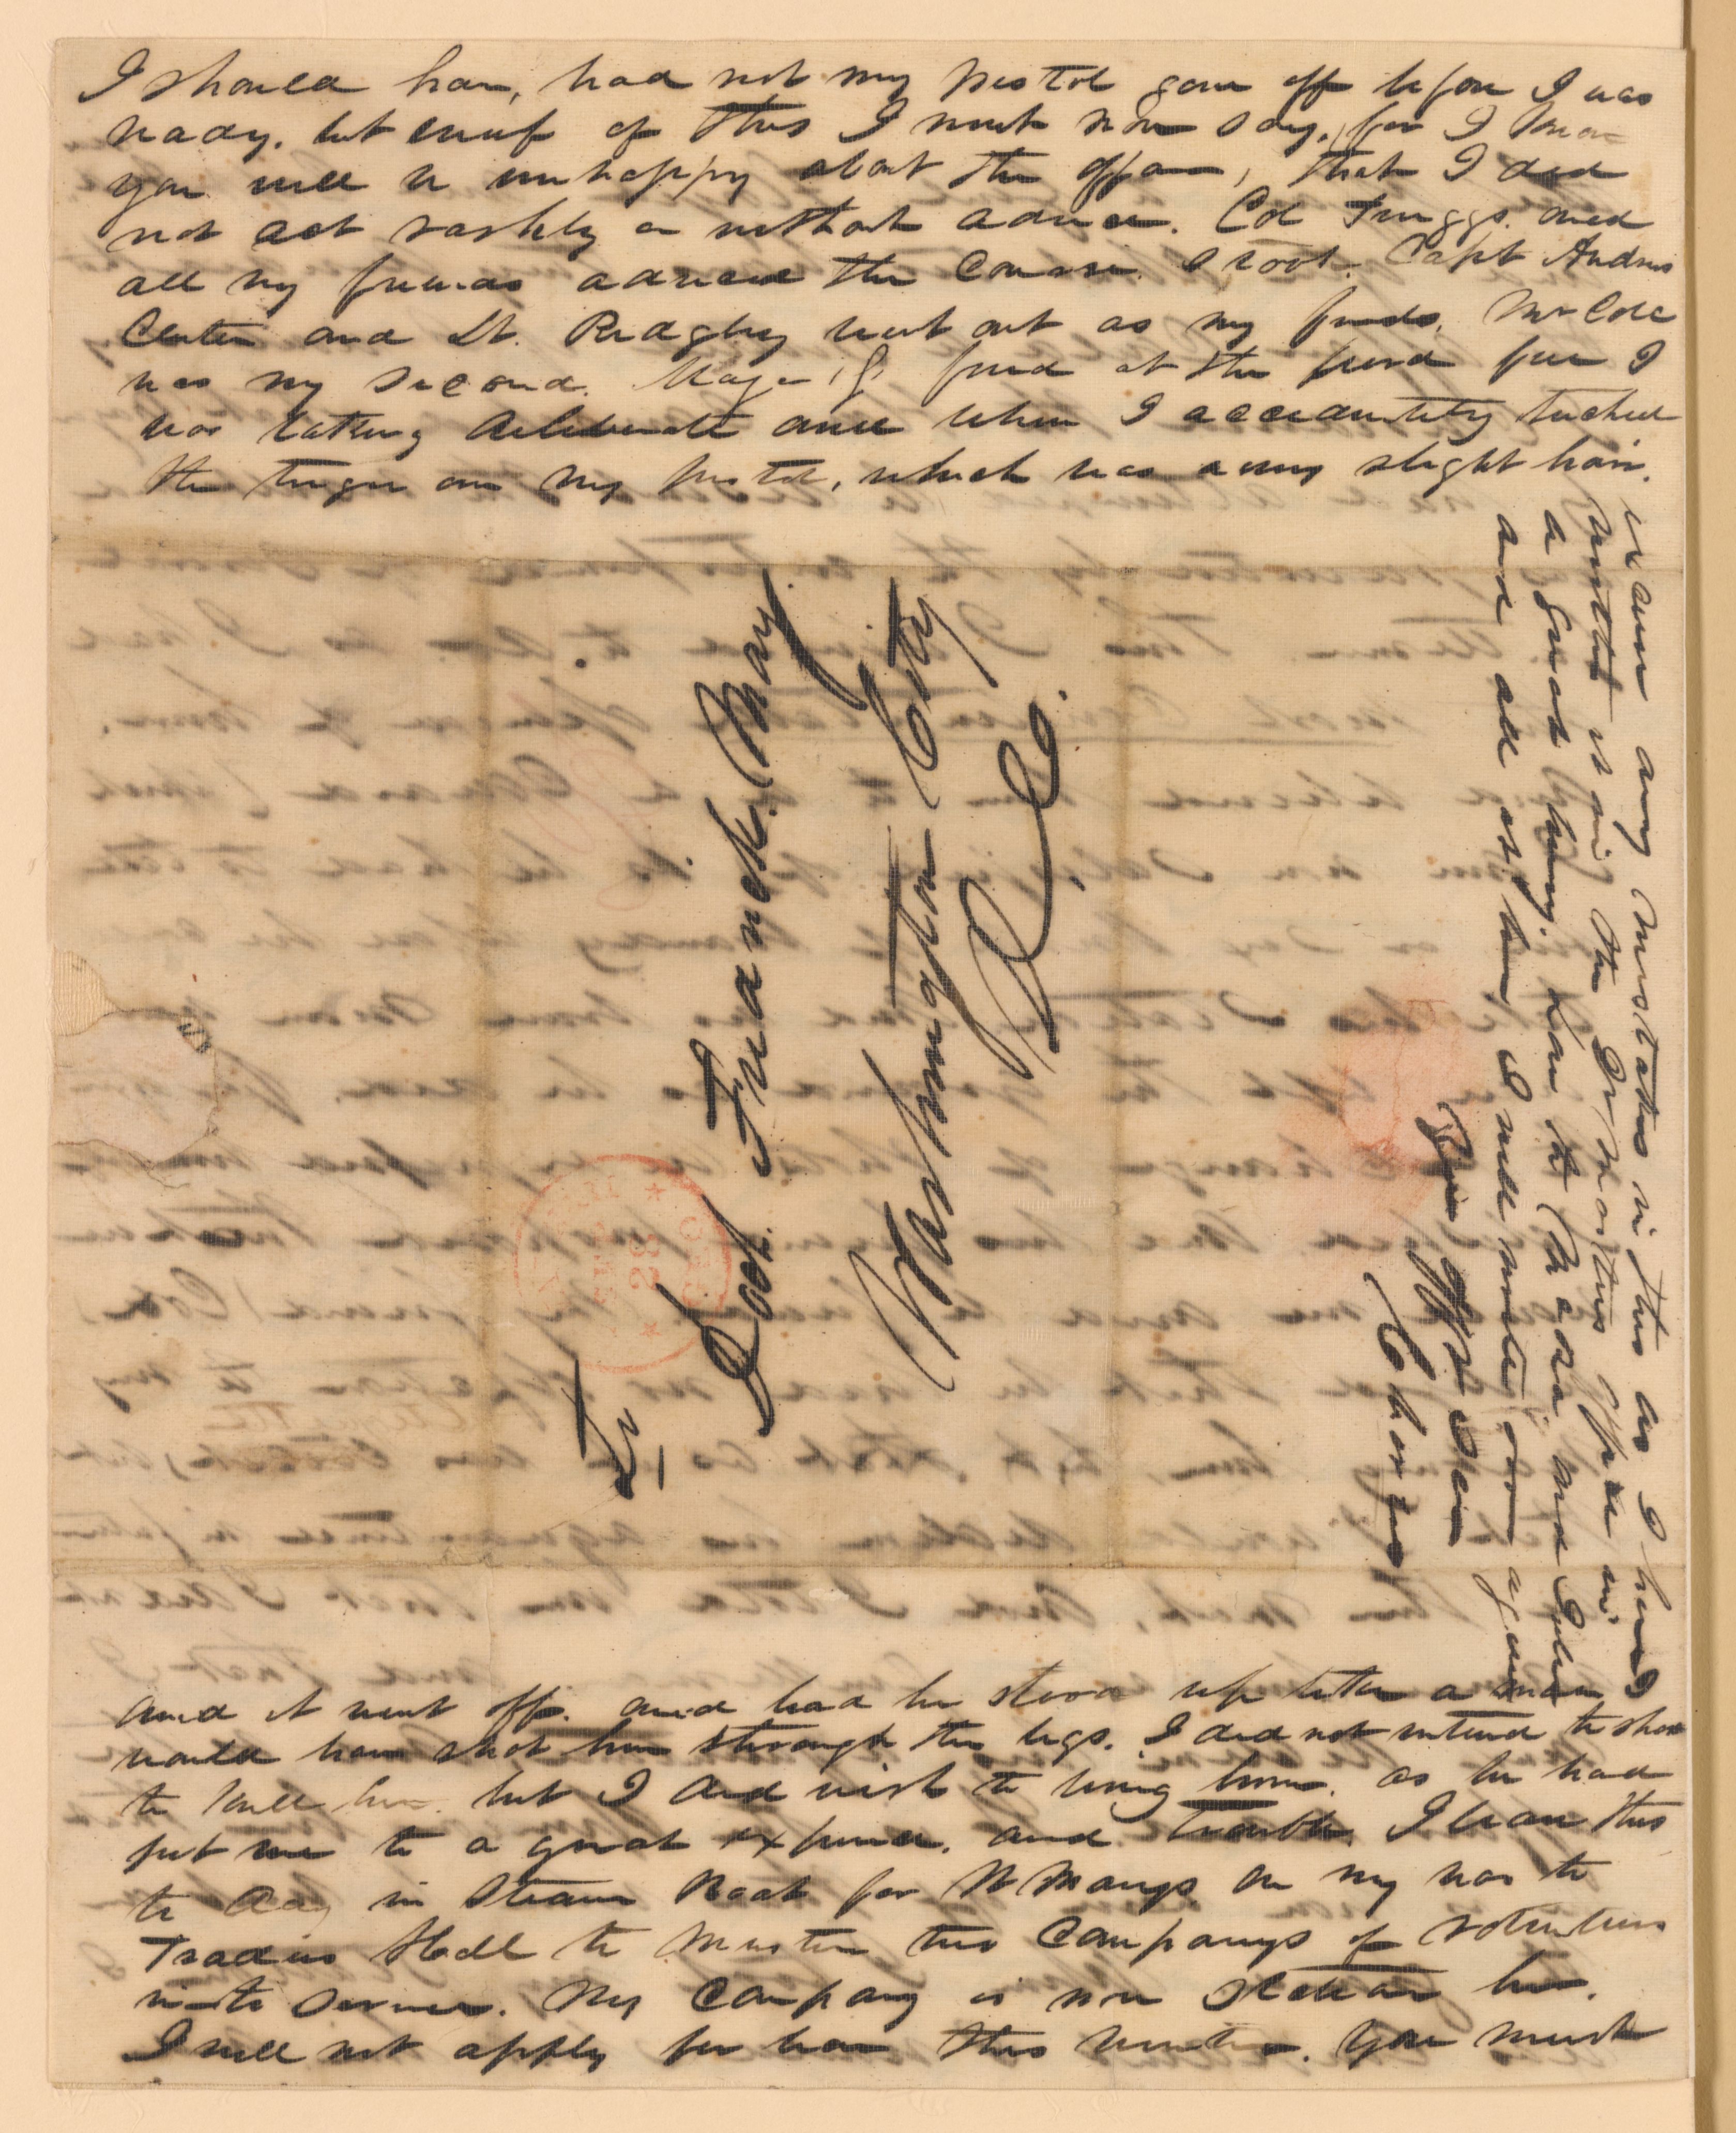 I should have, had not my Pistol gone off before I was
ready. but enuf of this I must now say, for I know
you will be unhappy about the affair, that I did
not act rashly or without advice. Col Twiggs. and
all my friends advised the Course I took. Capt Andrews
Center and Lt. Ridgley went out as my friends. Mr Cole
was my second. fired at the word fire I
was taking deliberate aim when I accidently tuched
the triger on my pistol, which was a very slight hair.
and it went off. and had he stood up like a man I
would have shot him through the legs. I did not intend to shoot
to kill him. but I did wish to wing him. as he had
put me to a great expence. and trouble. I leave this
to day in Steam Boat for St Marys on my way to
Traders Hill to Muster two Companys of volunteers
into service. My Company is now here.
I will not apply for leave this winter. You must
excuse any mistakes in this as I have
written it in the Dr Martins office in
a great hurry. Love to Ma and
and all at home, I will write soon again
Yours
Charles
To
Doct. Frederick. May.
Washington City
D. C.
28